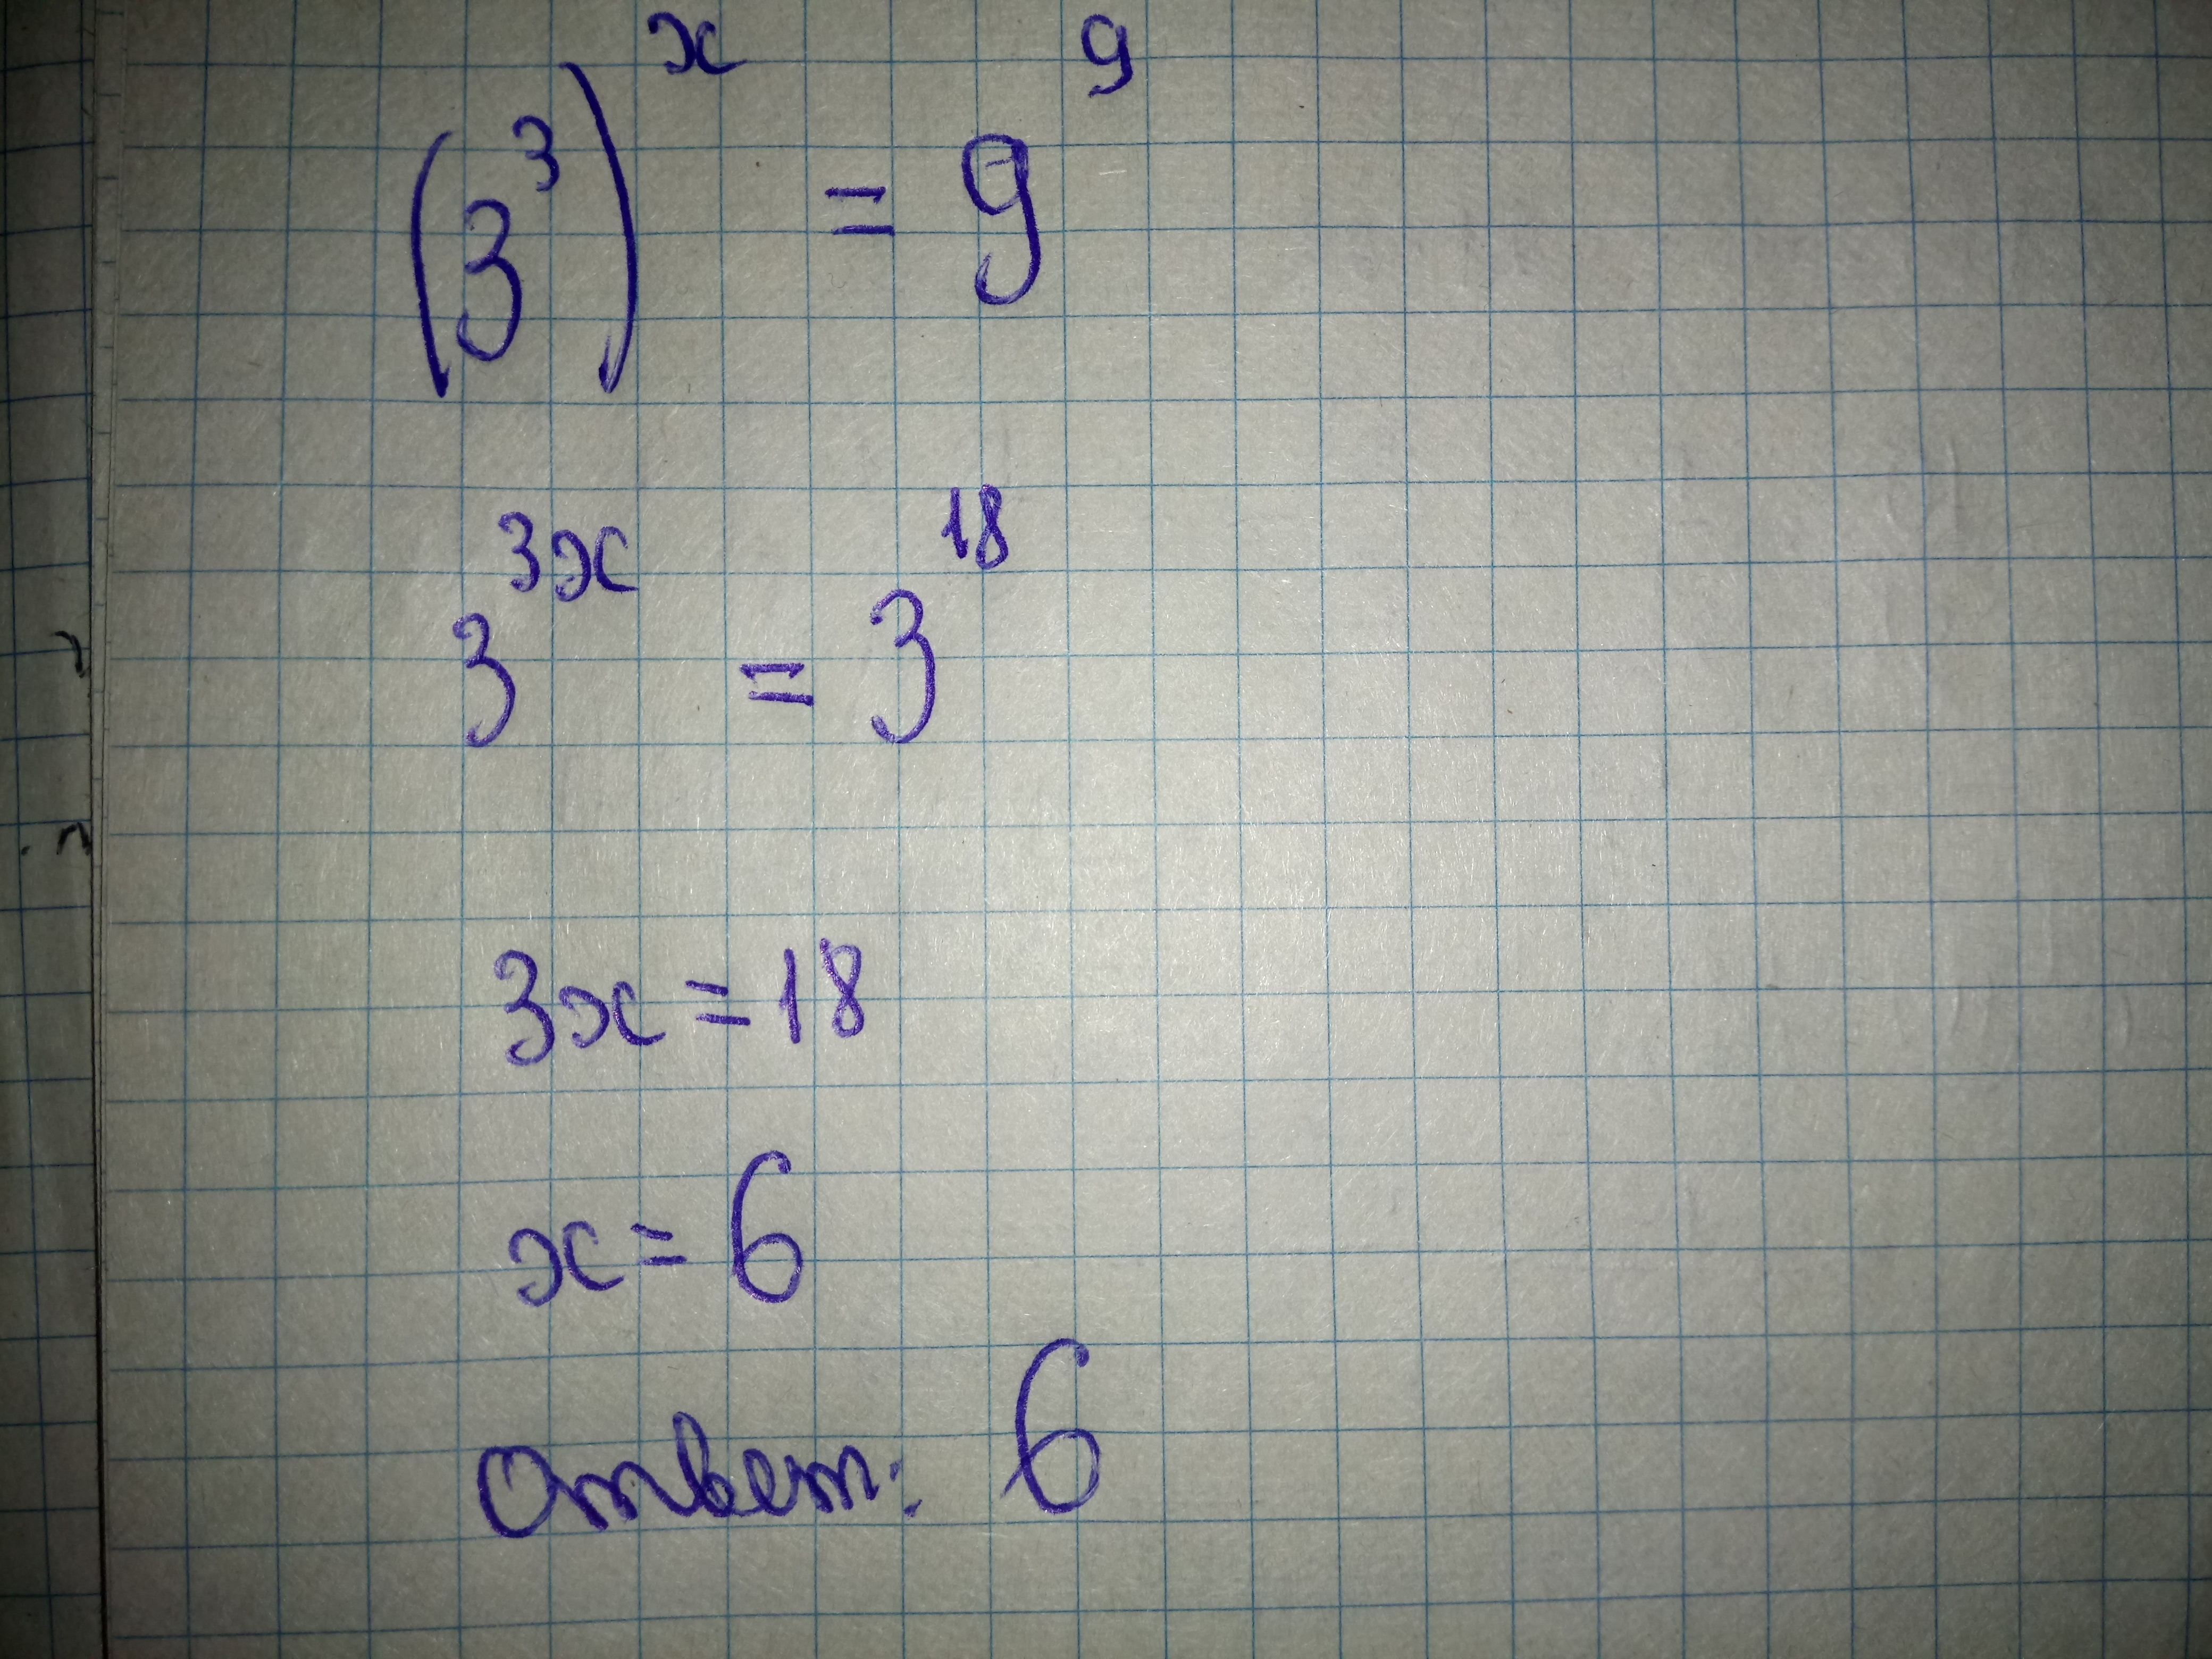 (3³)ˣ = 9⁹
3³ˣ = 3¹⁸
3x = 18
x = 6
Ответ: 6